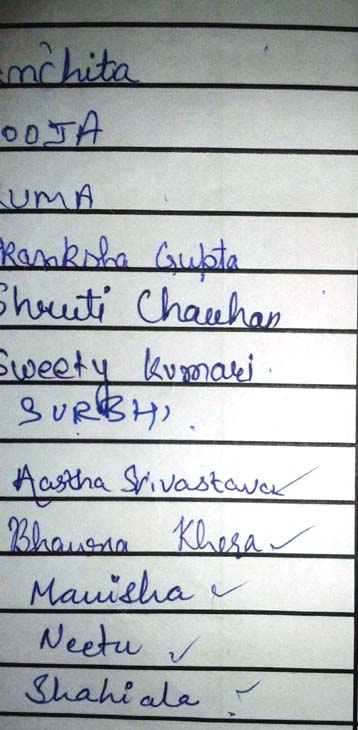 mchita
OOJA
UMA
kanksha Gupta
Shruti Chauhan
Sweety Kumari.
SURBHI.
Aastha Srivastava ✓
Bhawna Khera ✓
Manisha ✓
Neetu ✓
Shahiala ✓